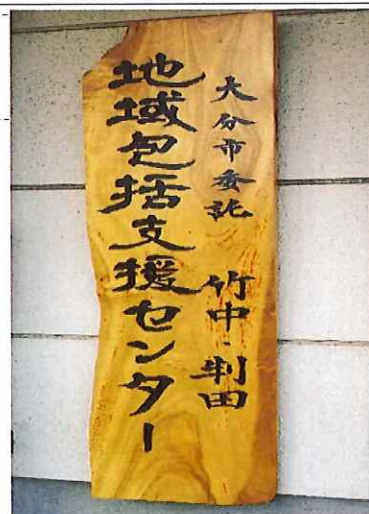 大分市委託 竹中・判田
地域包括支援センター